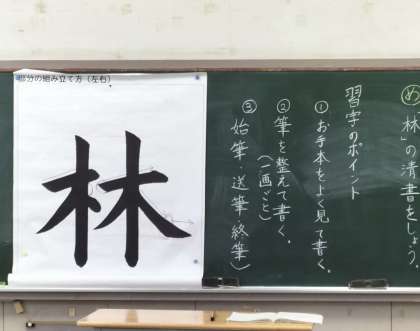 め「林」の清書をしよう。
習字のポイント
①お手本をよく見て書く。
②筆を整えて書く。
(一画ごと)
③始筆 送筆 終筆)
部分の組み立て方(左右)
林